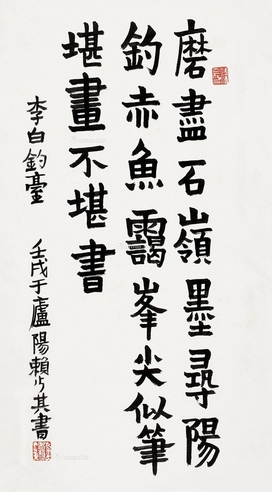 磨盡石嶺墨尋陽
釣赤魚靄峯尖似筆
堪畫不堪書
李白釣臺
壬戌于廬陽賴少其書